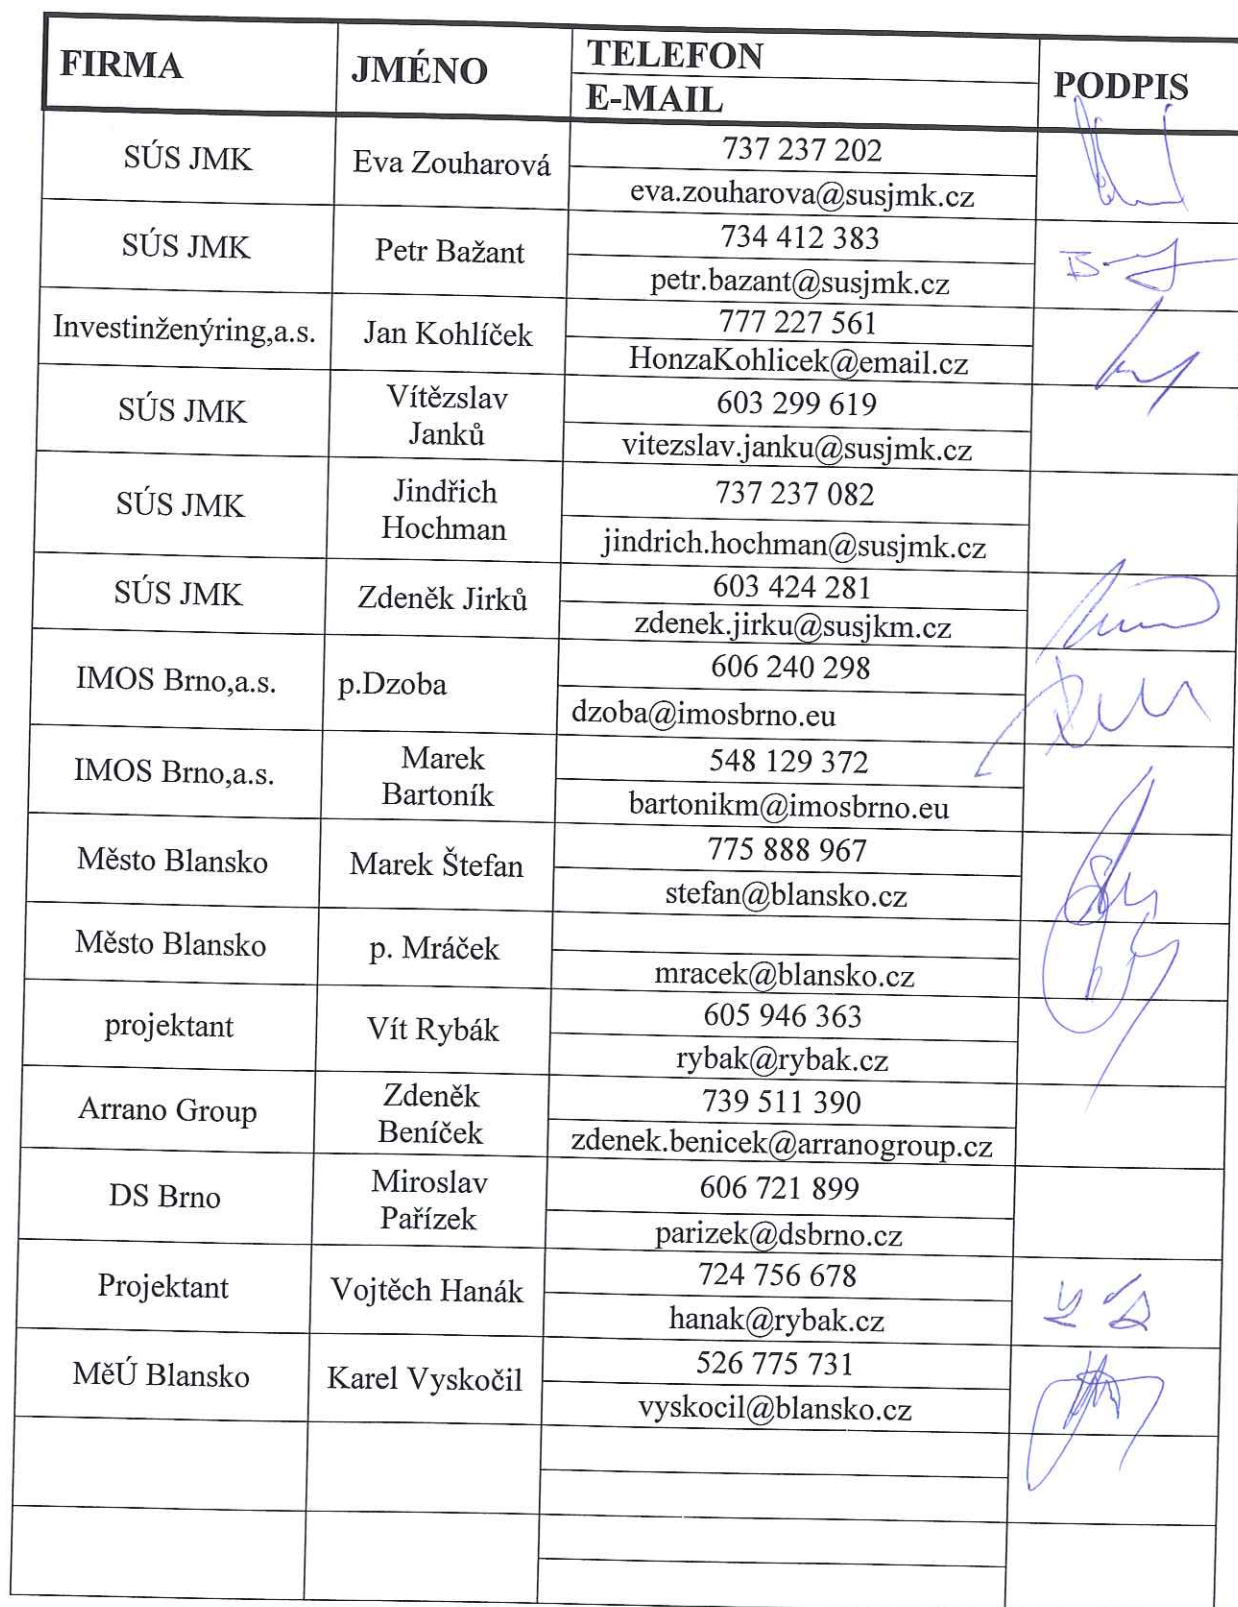 FIRMA JMÉNO TELEFON PODPIS
E-MAIL
SÚS JMK Eva Zouharová 737 237 202
eva.zouharova@susjmk.cz
SÚS JMK Petr Bažant 734 412 383
petr.bazant@susjmk.cz
Investinženýring,a.s. Jan Kohlíček 777 227 561
HonzaKohlicek@email.cz
SÚS JMK Vítězslav 603 299 619
Janků vitezslav.janku@susjmk.cz
SÚS JMK Jindřich 737 237 082
Hochman jindrich.hochman@susjmk.cz
SÚS JMK Zdeněk Jirků 603 424 281
zdenek.jirku@susjkm.cz
IMOS Brno,a.s. p.Dzoba 606 240 298
dzoba@imosbrno.eu
IMOS Brno,a.s. Marek 548 129 372
Bartoník bartonikm@imosbrno.eu
Město Blansko Marek Štefan 775 888 967
stefan@blansko.cz
Město Blansko p. Mráček
mracek@blansko.cz
projektant Vít Rybák 605 946 363
rybak@rybak.cz
Arrano Group Zdeněk 739 511 390
Beníček zdenek.benicek@arranogroup.cz
DS Brno Miroslav 606 721 899
Pařízek parizek@dsbrno.cz
Projektant Vojtěch Hanák 724 756 678
hanak@rybak.cz
MěÚ Blansko Karel Vyskočil 526 775 731
vyskocil@blansko.cz